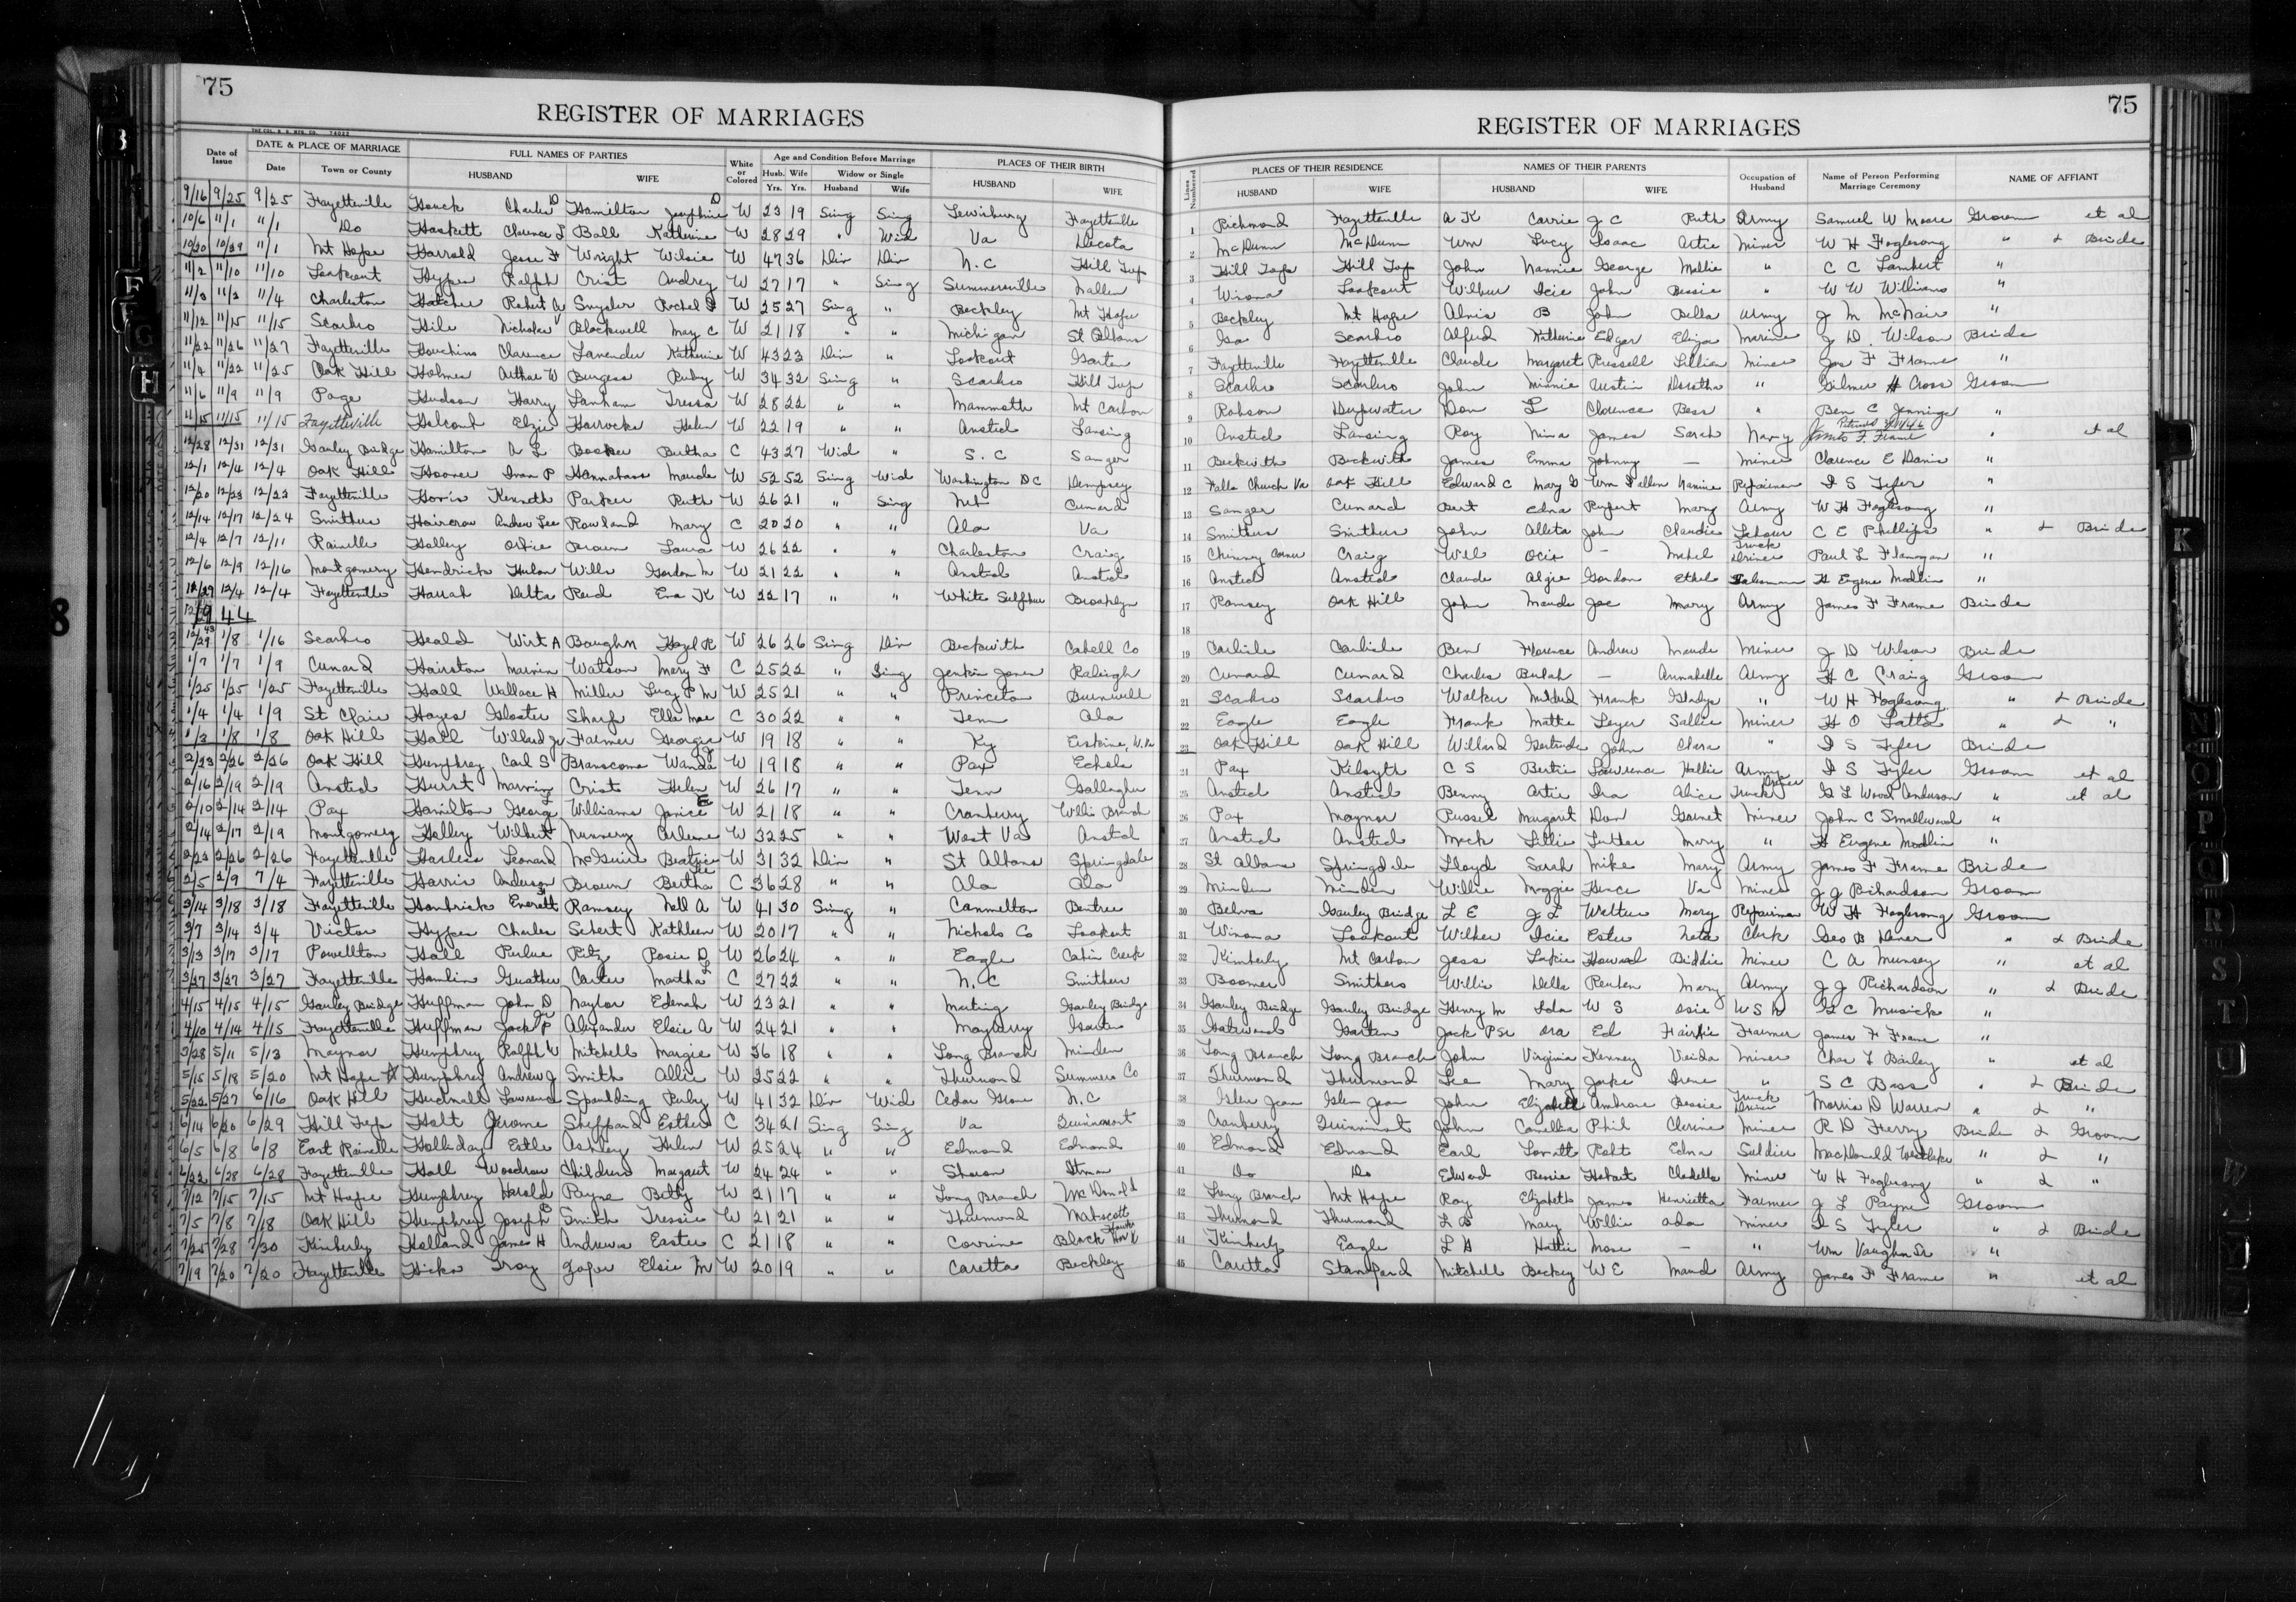 75
REGISTER OF MARRIAGES
Date of Issue DATE & PLACE OF MARRIAGE Date Town or County FULL NAMES OF PARTIES HUSBAND WIFE White or Colored Age and Condition Before Marriage Husb. Yrs. Wife Yrs. Widow or Single Husband Wife PLACES OF THEIR BIRTH HUSBAND WIFE
9/16 9/25 9/25 Fayetteville Houck Charles D Hamilton Josephine D W 23 19 Sing Sing Lewisburg Fayetteville
10/6 11/1 11/1 Do Haskett Clarence L Ball Katherine W 28 29 " Wid Va Dacota
10/20 10/29 11/1 Mt Hope Harrold Jesse F Wright Wilsie W 47 36 Div Div N.C Hill Top
11/2 11/10 11/10 Lookout Hypes Ralph Crist Audrey W 27 17 " Sing Summersville Nallen
11/3 11/3 11/4 Charleston Hatcher Robert W Snyder Rachel W 25 27 Sing " Beckley Mt Hope
11/12 11/15 11/15 Scarbro Hile Nicholas V Blackwell May C W 21 18 " " Michigan St Albans
11/22 11/26 11/27 Fayetteville Houchins Clarence Lavender Katherine W 43 23 Div " Lookout Garten
11/4 11/22 11/25 Oak Hill Holmes Arthur W Burgess Ruby W 34 32 Sing " Scarbro Hill Top
11/6 11/9 11/9 Page Hudson Harry Lanham Tressa W 28 22 " " Mammoth Mt Carbon
11/15 11/15 11/15 Fayetteville Holcomb Elzie Horrocks Helen W 22 19 " " Ansted Lansing
12/28 12/31 12/31 Gauley Bridge Hamilton A L Booker Bertha C 43 27 Wid " S.C Sanger
12/1 12/4 12/4 Oak Hill Hoover Ivan P Hannabass Maude W 52 52 Sing Wid Washington DC Dempsey
12/20 12/23 12/22 Fayetteville Kenneth Parker Ruth W 26 21 " Sing Cunard
12/14 12/17 12/24 Smithers Haircrow Andrew Lee Rowland Mary C 20 20 " " Ala Va
12/4 12/7 12/11 Rainelle Holley Brown Laura W 26 22 " " Charleston Craig
12/6 12/9 12/16 Montgomery Hendrick Hulon Wills Gordon M W 21 22 " " Ansted Ansted
12/4 12/4 Fayetteville Harrah Delta Reed Eva K W 22 17 " " White Sulphur Brooklyn
1944
12/29 43 1/8 1/16 Scarbro Heald Wirt A Baughn Hazel R W 26 26 Sing Div Beckwith Cabell Co
1/7 1/7 1/9 Cunard Hairston Marvin Watson Mary F C 25 22 " Sing Jenkin Jones Raleigh
1/25 1/25 1/25 Fayetteville Hall Wallace H Miller Lucy P M W 25 21 " " Princeton Burnwell
1/4 1/4 1/9 St Clair Hayes Gloster Sharp Ella Mae C 30 22 " " Tenn Ala
1/3 1/8 1/8 Oak Hill Hall Willard Jr Farmer Georgia W 19 18 " " Ky Erskine, W.Va
2/23 2/26 2/26 Oak Hill Humphrey Carl S Branscome Wanda J W 19 18 " " Pax Echols
2/16 2/19 2/19 Ansted Hurst Marvin Crist Helen W 26 17 " " Tenn Gallagher
2/10 2/14 2/14 Pax Hamilton George L Williams Janice E W 21 18 " " Cranberry Willis Branch
2/14 2/17 2/19 Montgomery Holley Wilbert Nunnery Corleene W 32 25 " " West Va Ansted
2/23 2/26 2/26 Fayetteville Harless Leonard McGuire Beatrice W 31 32 Div " St Albans Springdale
2/5 2/9 7/4 Fayetteville Harris Anderson Brown Bertha Lee C 36 28 " " Ala Ala
3/14 3/18 3/18 Fayetteville Hendrick Everett H Ramsey Nell A W 41 30 Sing " Cannelton Bentree
3/7 3/14 3/4 Victor Hypes Charles Sebert Kathleen W 20 17 " " Nicholas Co Lookout
3/13 3/17 3/17 Powellton Hall Perlue Pitz Rosie D W 26 24 " " Eagle Cabin Creek
3/27 3/27 3/27 Fayetteville Hamlin Gwather Carter Martha L C 27 22 " " N.C Smithers
4/15 4/15 4/15 Gauley Bridge Huffman John D Naylor Edenah W 23 21 " " Muting Gauley Bridge
4/10 4/14 4/15 Fayetteville Huffman Jack P Jr Alexander Elsie A W 24 21 " " Mayberry Garten
3/28 5/11 5/13 Maynor Humphrey Ralph W Mitchell Margie W 36 18 " " Long Branch Minden
5/15 5/18 5/20 Mt Hope Humphrey Andrew J Smith Allie W 25 22 " " Thurmond Summers Co
5/22 5/27 6/16 Oak Hill Hucknall Lawrence Spaulding Ruby W 41 32 Div Wid Cedar Grove N.C
6/14 6/20 6/29 Hill Top Holt Jerome Sheppard Esther C 34 21 Sing Sing Va Quinnimont
6/5 6/8 6/8 East Rainelle Holliday Estle Ashley Helen W 25 24 " " Edmond Edmond
6/22 6/28 6/28 Fayetteville Hall Woodrow Childress Margaret W 24 24 " " Sharon Itman
7/12 7/15 7/15 Mt Hope Humphrey Harold Payne Betty W 21 17 " " Long Branch McDonald
7/5 7/8 7/18 Oak Hill Humphrey Joseph B Smith Tressie W 21 21 " " Thurmond Mabscott
7/25 7/28 7/30 Kimberly Holland James H Andrews Easter C 21 18 " " Corrine Black Hawk
7/19 7/20 7/20 Fayetteville Hicks Troy Elsie M W 20 19 " " Caretta Beckley
75
REGISTER OF MARRIAGES
Lines Numbered PLACES OF THEIR RESIDENCE HUSBAND WIFE NAMES OF THEIR PARENTS HUSBAND WIFE Occupation of Husband Name of Person Performing Marriage Ceremony NAME OF AFFIANT
1 Richmond Fayetteville A K Carrie J C Ruth Army Samuel W Moore Groom et al
2 McDunn McDunn Wm Lucy Isaac Artie Miner W H Foglesong " & Bride
3 Hill Top Hill Top John Nannie George Mollie " C C Lambert "
4 Winona Lookout Wilbur Icie John Bessie " W W Williams "
5 Beckley Mt Hope Almis B John Bella Army J M McNair "
6 Ga Scarbro Alfred Katherine Edgar Eliza Marine J D Wilson Bride
7 Fayetteville Fayetteville Claude Margaret Russell Lillian Miner Jas F Frame "
8 Scarbro Scarbro John Minnie Austin Doratha " Gilmer H Cross Groom
9 Robson Deepwater Don L Clarence Bess " Ben C Jennings "
10 Ansted Lansing Roy Nina James Sarah Navy James F. Frame " et al
11 Beckwith Beckwith James Emma Johnny — Miner Clarence E Davis "
12 Falls Church Va Oak Hill Edward C Mary D Wm Nannie Repairman I S Tyler "
13 Sanger Cunard Bert Edna Rupert Mary Army W H Foglesong "
14 Smithers Smithers John Alleta John Claudie Labour C E Phillips " & Bride
15 Chimney Corner Craig Will Ocie — Mabel Truck Driver Paul L Flanagan "
16 Ansted Ansted Claude Algie Gordon Ethel Salesman H Eugene Modlin "
17 Ramsey Oak Hill John Maude Joe Mary Army James F Frame Bride
18
19 Carlisle Carlisle Ben Florence Andrew Maude Miner J D Wilson Bride
20 Cunard Cunard Charles Bulah — Annabelle Army H C Craig Groom
21 Scarbro Scarbro Walker Mildred Frank Gladys " W H Foglesong " & Bride
22 Eagle Eagle Frank Mattie Sallie Miner H O Latta " & "
23 Oak Hill Oak Hill Willard Gertrude John Clara " I S Tyler Bride
24 Pax Kilsyth C S Bertie Lawrence Hallie Army I S Tyler Groom et al
25 Ansted Ansted Benny Artie Ira Alice Truck Driver G L Wood Anderson " et al
26 Pax Maynor Russel Margaret Don Garnet Miner John C Smallwood "
27 Ansted Ansted Meck Lillie Luther Mary " H Eugene Modlin "
28 St Albans Springdale Lloyd Sarah Mike Mary Army James F Frame Bride
29 Minden Minden Willie Maggie Va Miner J J Richardson Groom
30 Belva Gauley Bridge L E J L Walter Mary Repairman W H Foglesong Groom
31 Winona Lookout Wilber Icie Ester Neta Clerk Geo B " & Bride
32 Kimberly Mt Carbon Jess Lakie Howard Biddie Miner C A Munsey " et al
33 Boomer Smithers Willis Della Reuben Mary Army J J Richardson " & Bride
34 Gauley Bridge Gauley Bridge Henry M Lola W S Osie W S N G C Musick "
35 Gatewood Garten Jack P Sr Ora Ed Fairlie Farmer James F Frame "
36 Long Branch Long Branch John Virginia Kenney Veida Miner Chas L Bailey " et al
37 Thurmond Thurmond Lee Mary Jake Irene " S C Bass " & Bride
38 Glen Jean Glen Jean John Elizabeth Ambrose Bessie Truck Driver Morris D Warren " & "
39 Cranberry Quinnimont John Camellia Phil Clerine Miner R D Ferry Bride & Groom
40 Edmond Edmond Earl Robt Edna Soldier MacDonald Westlake " & "
41 Do Do Edward Bessie Hobart Cledella Miner W H Foglesong " & "
42 Long Branch Mt Hope Roy Elizabeth James Henrietta Farmer J L Payne Groom
43 Thurmond Thurmond L B Mary Willie Ada Miner I S Tyler " & Bride
44 Kimberly Eagle L G Hattie Mose — " Wm Vaughn Sr "
45 Caretta Stanford Mitchell Beckey W E Maud Army James F Frame " et al